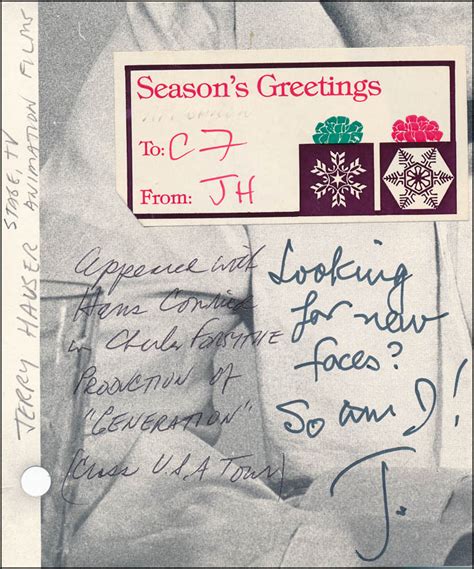 Season's Greetings
To: C F
From: JH
JERRY HAUSER
STAGE, TV
ANIMATION FILMS
Appeared with
Hans Conried
in Charles FORSYTHE
PRODUCTION OF
"GENERATION"
(Cross U.S.A Tour)
Looking
for new
faces?
So am I!
J.